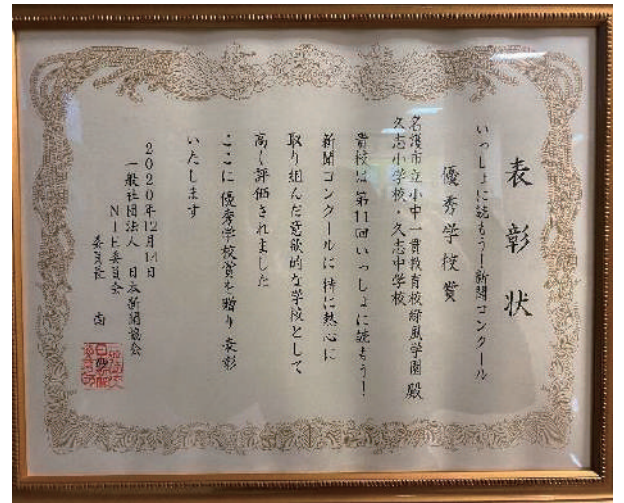 表彰状
いっしょに読もう!新聞コンクール
優秀学校賞
名護市立小中一貫教育校緑風学園 殿
久志小学校・久志中学校
貴校は第11回いっしょに読もう!
新聞コンクールに特に熱心に
取り組んだ意欲的な学校として
高く評価されました
ここに優秀学校賞を贈り表彰
いたします
2020年12月14日
一般社団法人 日本新聞協会
NIE委員会
委員長